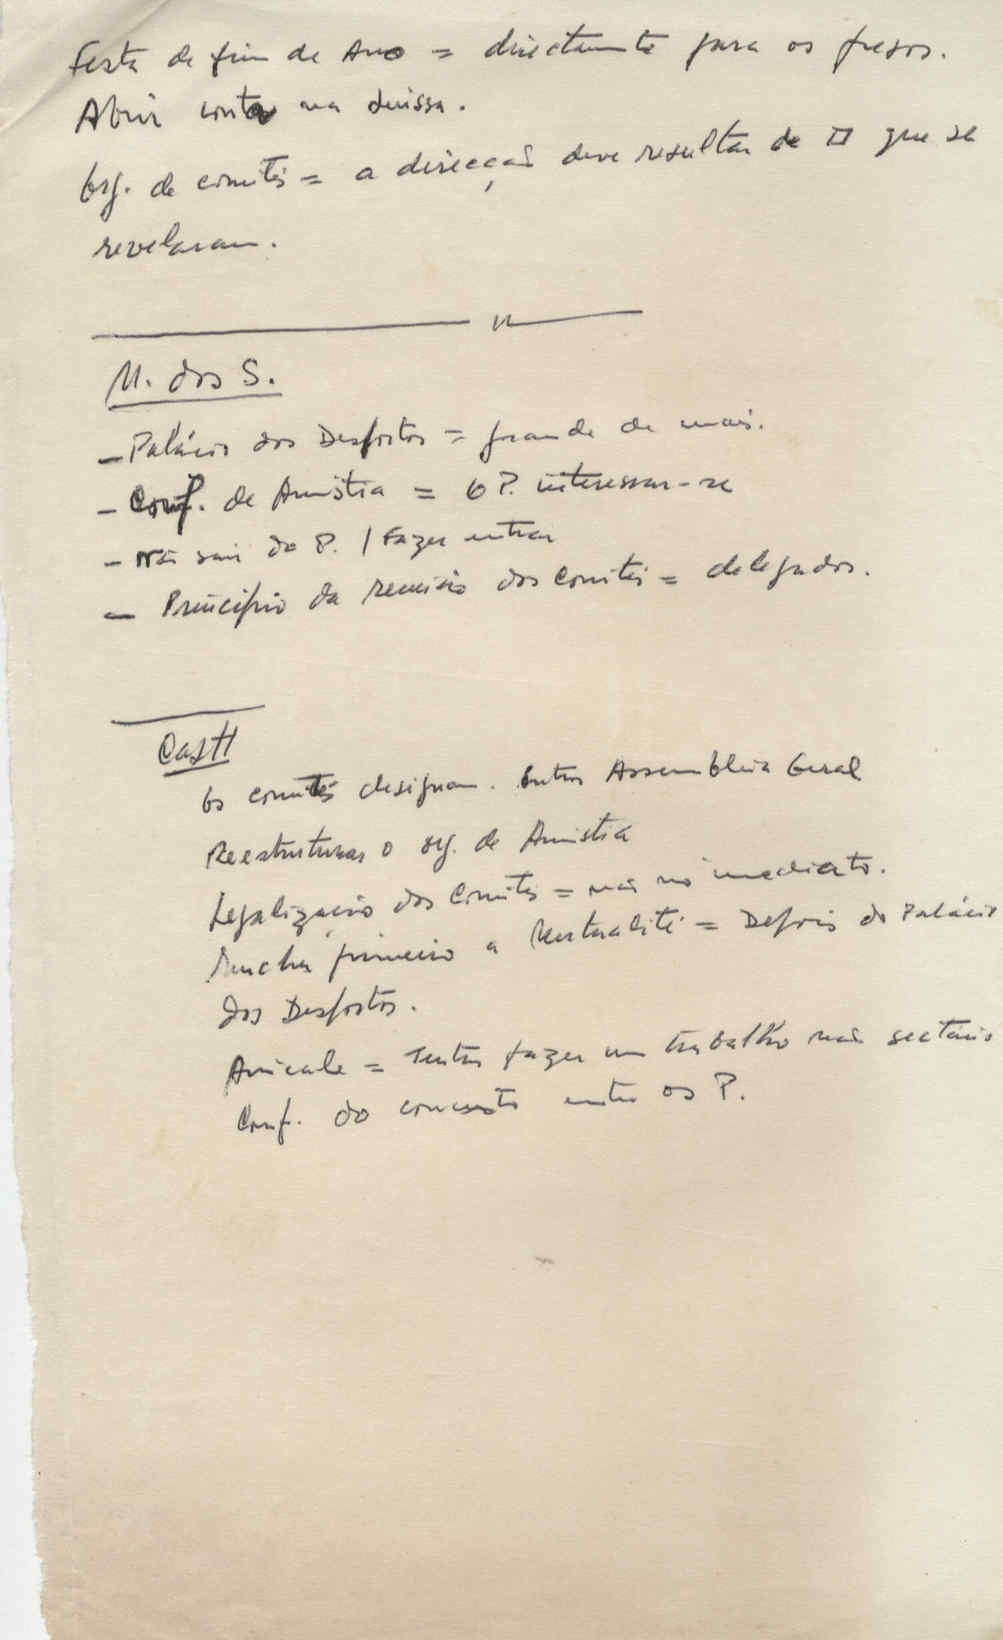 Festa de fim de Ano = directamente para os presos.
Abrir conta na Suissa.
Org. de comités = a direcção deve resultar de □ que se
revelaram.
M. dos S.
- Palácio dos Desportos = grande de mais.
- Conf. de Amnistia = O P. interessar-se
- Não sair do P. / Fazer entrar
- Princípio da reunião dos Comités = delegados.
Os comités designam. Outra Assembleia Geral
Reestruturar o org. de Amnistia
Legalização dos Comités = não no imediato.
primeiro a Mutualité = Depois do Palácio
dos Desportos.
Amicale = Tentar fazer um trabalho não sectário
Conf. do entre os P.